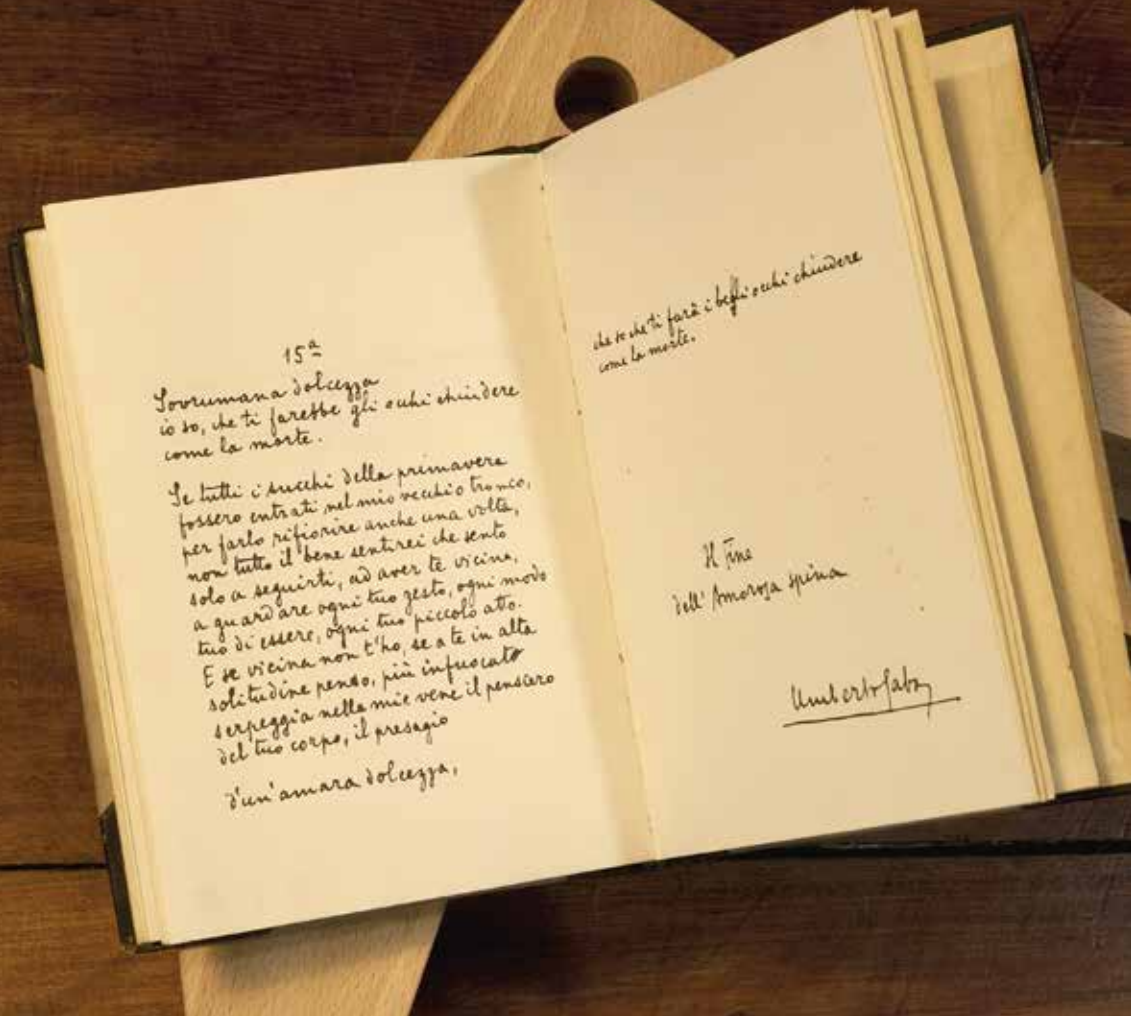 15ª
Sovrumana dolcezza
io so, che ti farebbe gli occhi chiudere
come la morte.
Se tutti i succhi della primavera
fossero entrati nel mio vecchio tronco,
per farlo rifiorire anche una volta,
non tutto il bene sentirei che sento
solo a seguirti, ad aver te vicina,
a guardare ogni tuo gesto, ogni modo
tuo di essere, ogni tuo piccolo atto.
E se vicina non t'ho, se a te in alta
solitudine penso, più infuocato
serpeggia nelle mie vene il pensiero
del tuo corpo, il presagio
d'un'amara dolcezza,
che so che ti farà i begli occhi chiudere
come la morte.
Il Fine
dell'Amorosa spina
Umberto Saba